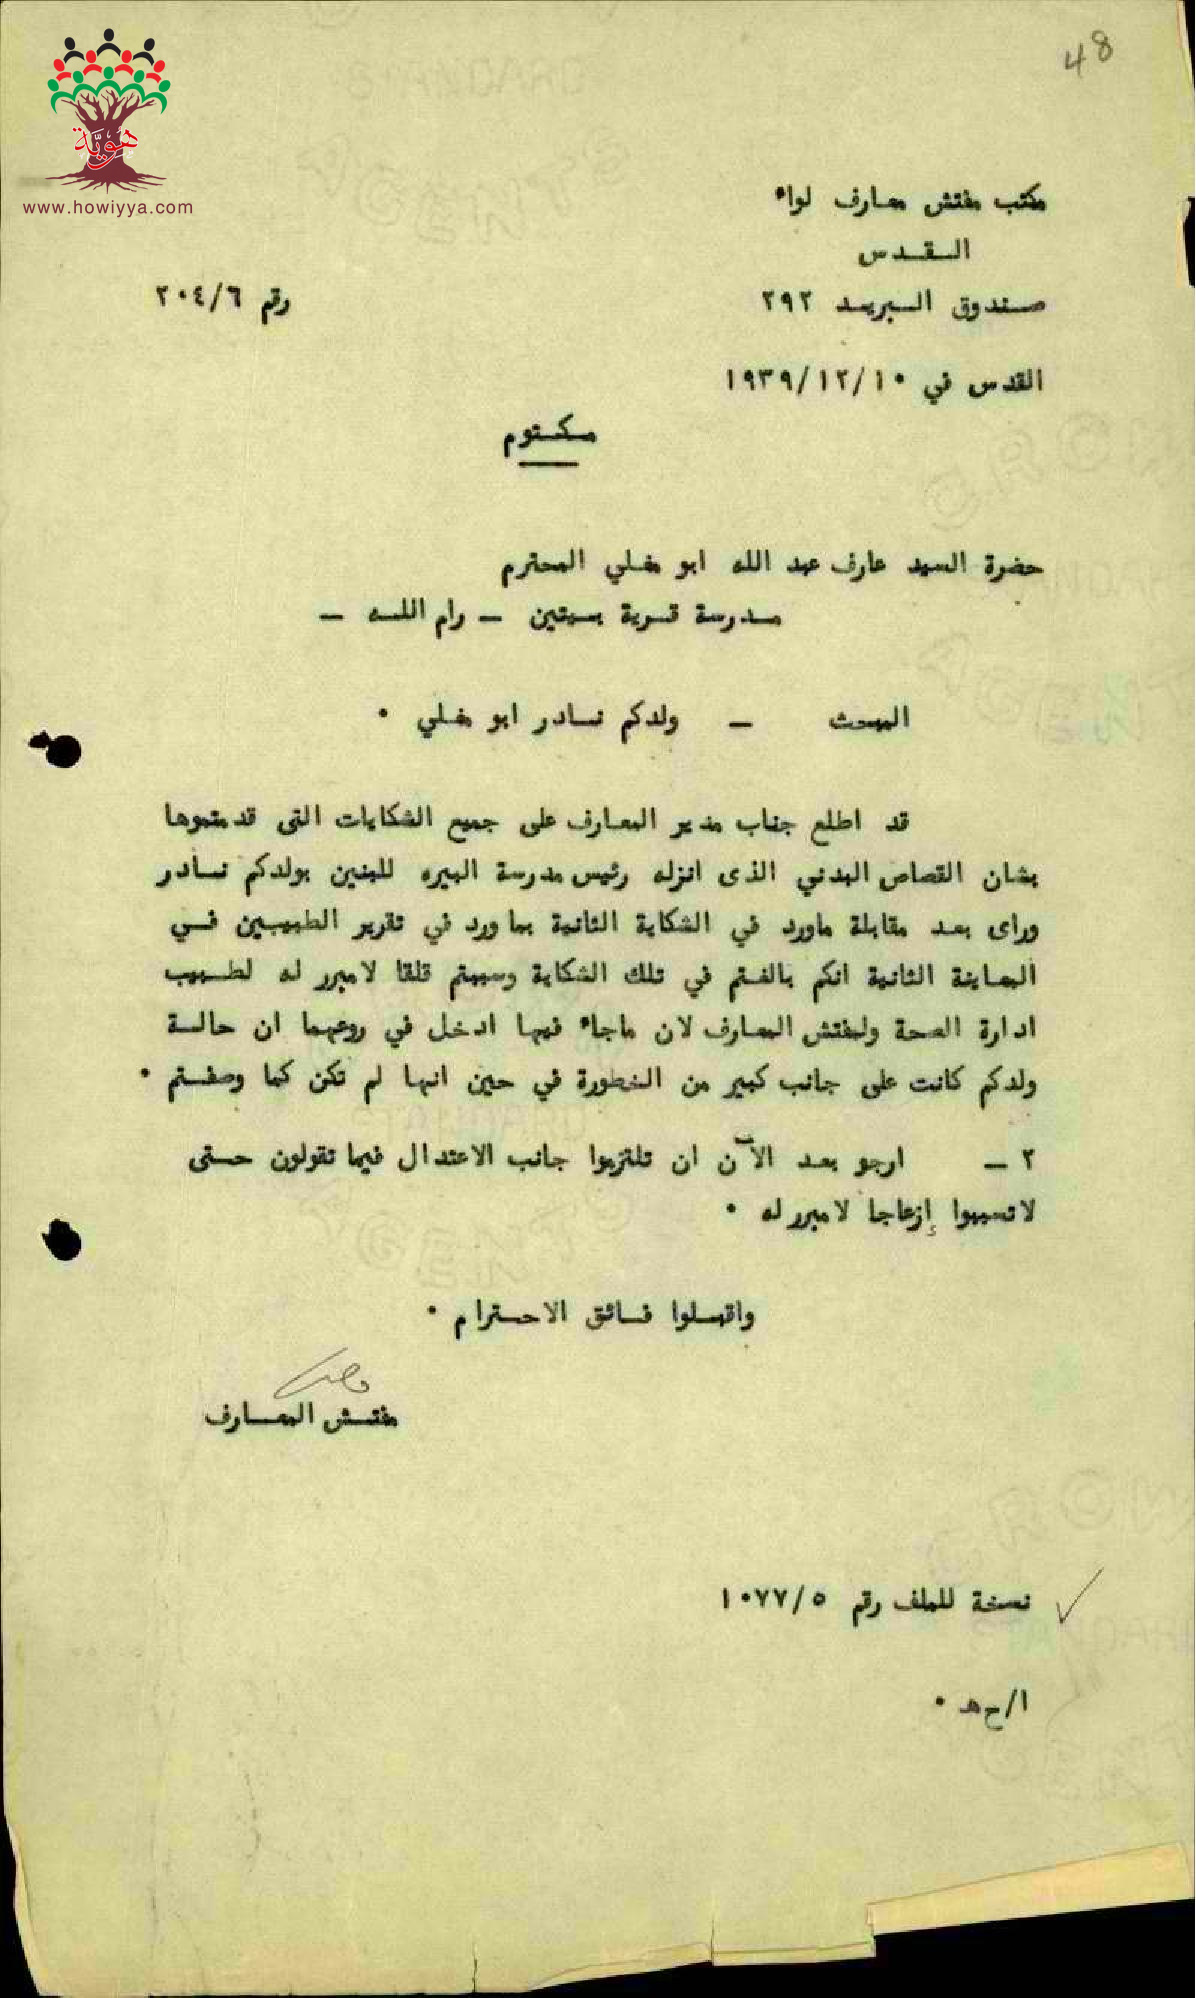 48
هوية
www.howiyya.com
مكتب مفتش معارف لواء
القدس
صندوق البريد ٢٩٢
رقم ٢٠٤/٦
القدس في ١٩٣٩/١٢/١٠
مكتوم
حضرة السيد عارف عبد الله ابو مغلي المحترم
مدرسة قرية بيتين - رام الله -
البحث - ولدكم نادر ابو مغلي .
قد اطلع جناب مدير المعارف على جميع الشكايات التى قدمتموها
بشان القصاص البدني الذى انزله رئيس مدرسة البيره للبنين بولدكم نادر
وراى بعد مقابلة ماورد في الشكاية الثانية بما ورد في تقرير الطبيبين في
المعاينة الثانية انكم بالغتم في تلك الشكاية وسببتم قلقا لامبرر له لطبيب
ادارة الصحة ولمفتش المعارف لان ماجاء فيها ادخل في روعهما ان حالة
ولدكم كانت على جانب كبير من الخطورة في حين انها لم تكن كما وصفتم .
٢ - ارجو بعد الآن ان تلتزموا جانب الاعتدال فيما تقولون حتى
لاتسببوا إزعاجا لامبرر له .
واقبلوا فائق الاحترام .
مفتش المعارف
نسخة للملف رقم ١٠٧٧/٥
ا/ح ھ .